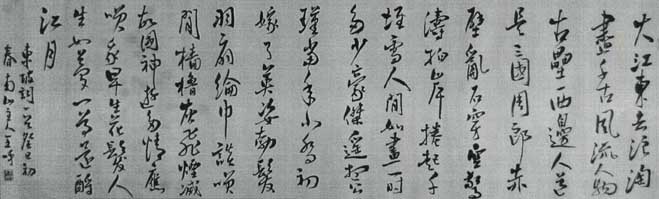 大江東去浪淘
盡千古風流人物
古壘西邊人道
是三國周郎赤
壁亂石穿空驚
濤拍岸捲起千
堆雪人間如畫一時
多少豪傑遥想公
瑾當年小喬初
嫁了英姿勃髮
羽扇綸巾談笑
間檣櫓灰飛煙滅
故國神遊多情應
笑我早生花髮人
生如夢一尊還酹
江月
東坡詞一首癸巳初
春南山主人王